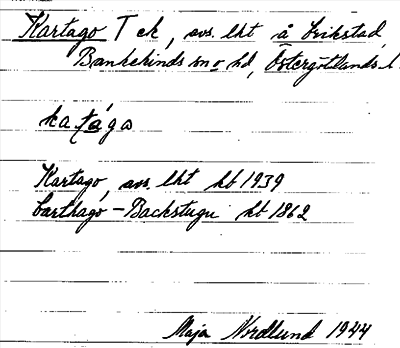 Kartago T ek, avs. lht å Grikstad,
Bankekinds sn o hd, Östergötlands l.
ka tágo
Kartago, avs. lht kb 1939
Carthago - Backstugu kb 1862
Maja Nordlund 1944